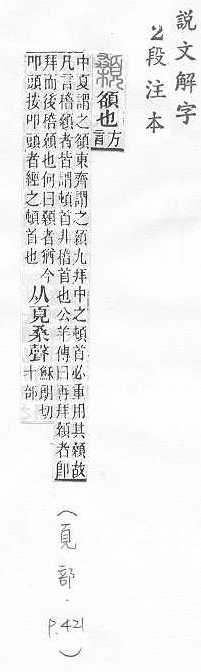 說文解字
之段注本
顙 頟也方言
中夏謂之頟東齊謂之顙九拜中之頓首必重用其顙故
凡言稽顙者皆謂頓首非稽首也公羊傳曰再拜顙者卽
拜而後稽顙也何曰顙者猶今
叩頭按叩頭者經之頓首也
从頁桑聲 蘇朗切十部
（頁部．p.421）